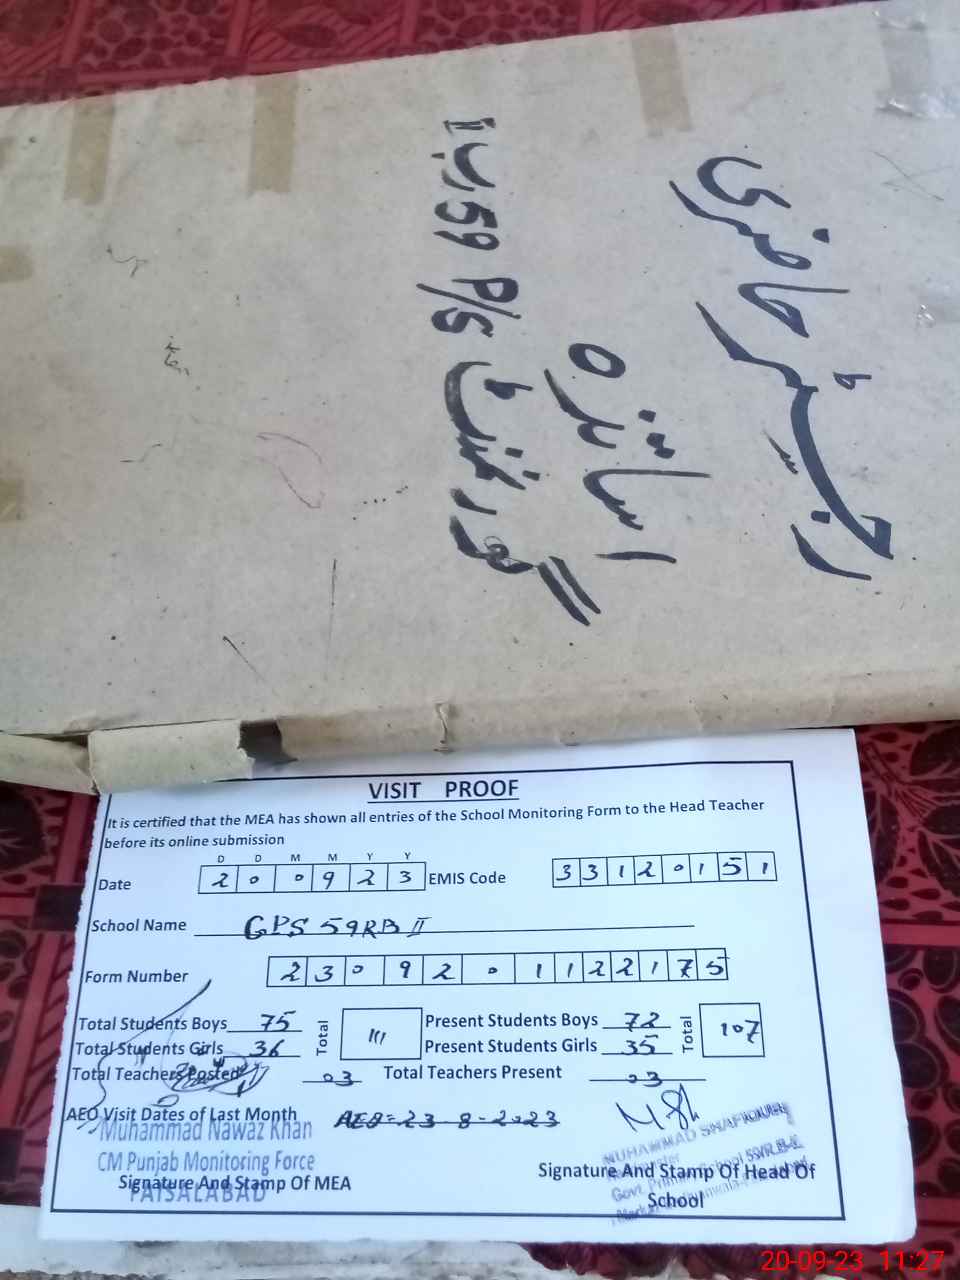 رجسٹر حاضری
اساتذہ
گورنمنٹ P/S 59 رب II
VISIT PROOF
It is certified that the MEA has shown all entries of the School Monitoring Form to the Head Teacher
before its online submission
D D M M Y Y
Date 2 0 0 9 2 3 EMIS Code 3 3 1 2 0 1 5 1
School Name GPS 59RB II
Form Number 2 3 0 9 2 0 1 1 2 2 1 7 5
Total Students Boys 75 Total 111 Present Students Boys 72 Total 107
Total Students Girls 36 Present Students Girls 35
Total Teachers Posted 03 Total Teachers Present 03
AEO Visit Dates of Last Month AEO=23-8-2023
Muhammad Nawaz Khan
CM Punjab Monitoring Force
FAISALABAD
Signature And Stamp Of MEA
MUHAMMAD SHAFIQUE
Govt. Primary School
Signature And Stamp Of Head Of
School
20-09-23 11:27